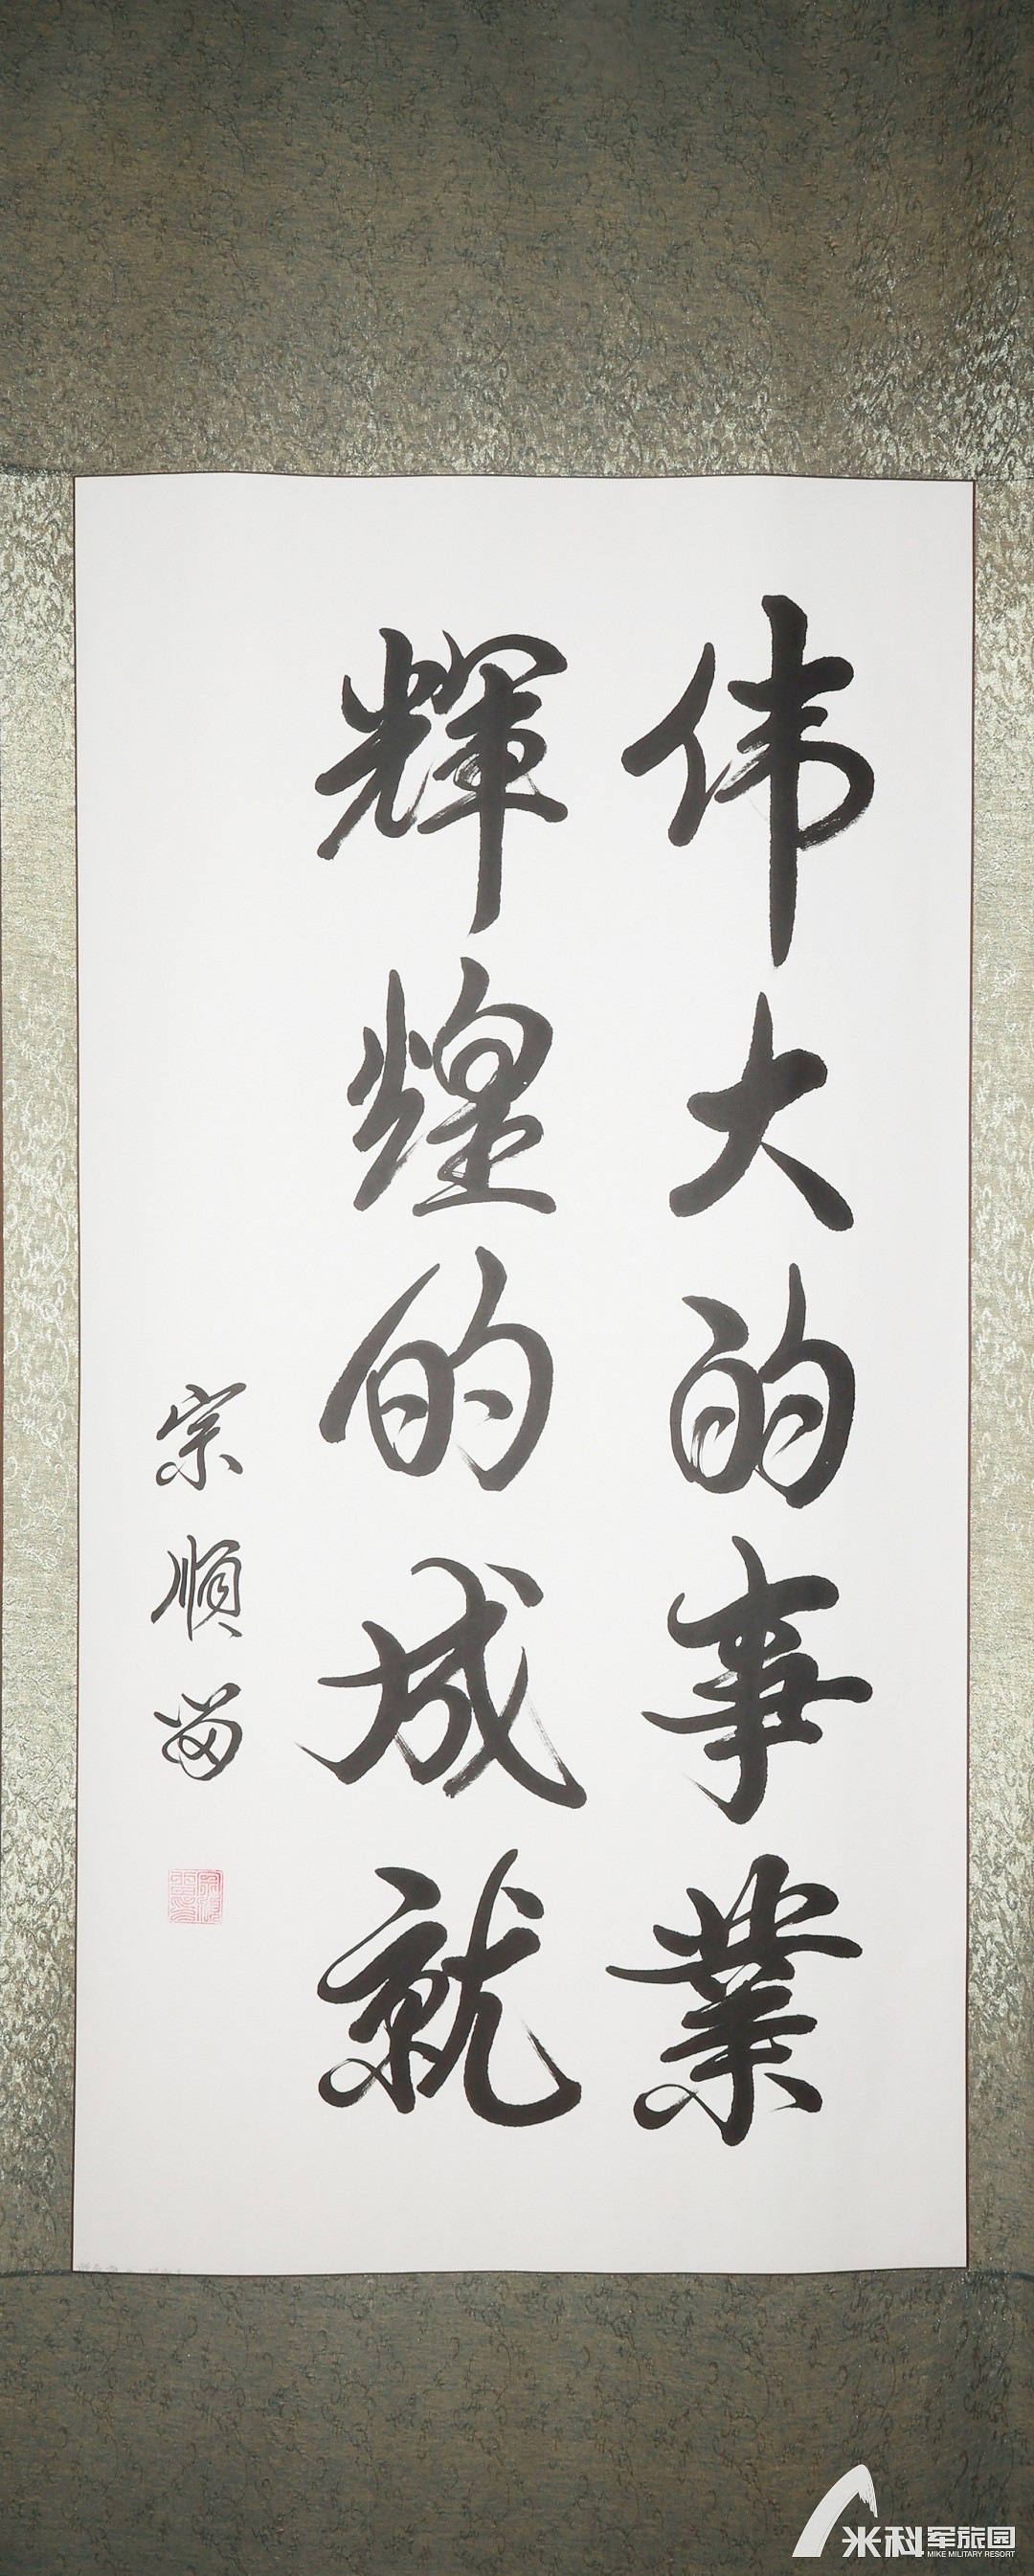 伟大的事業
輝煌的成就
宗順留
米科军旅园
MIKE MILITARY RESORT